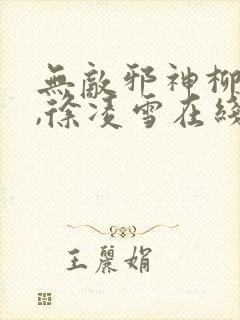 無敵邪神柳
,徐凌雪在綫
王麗娟